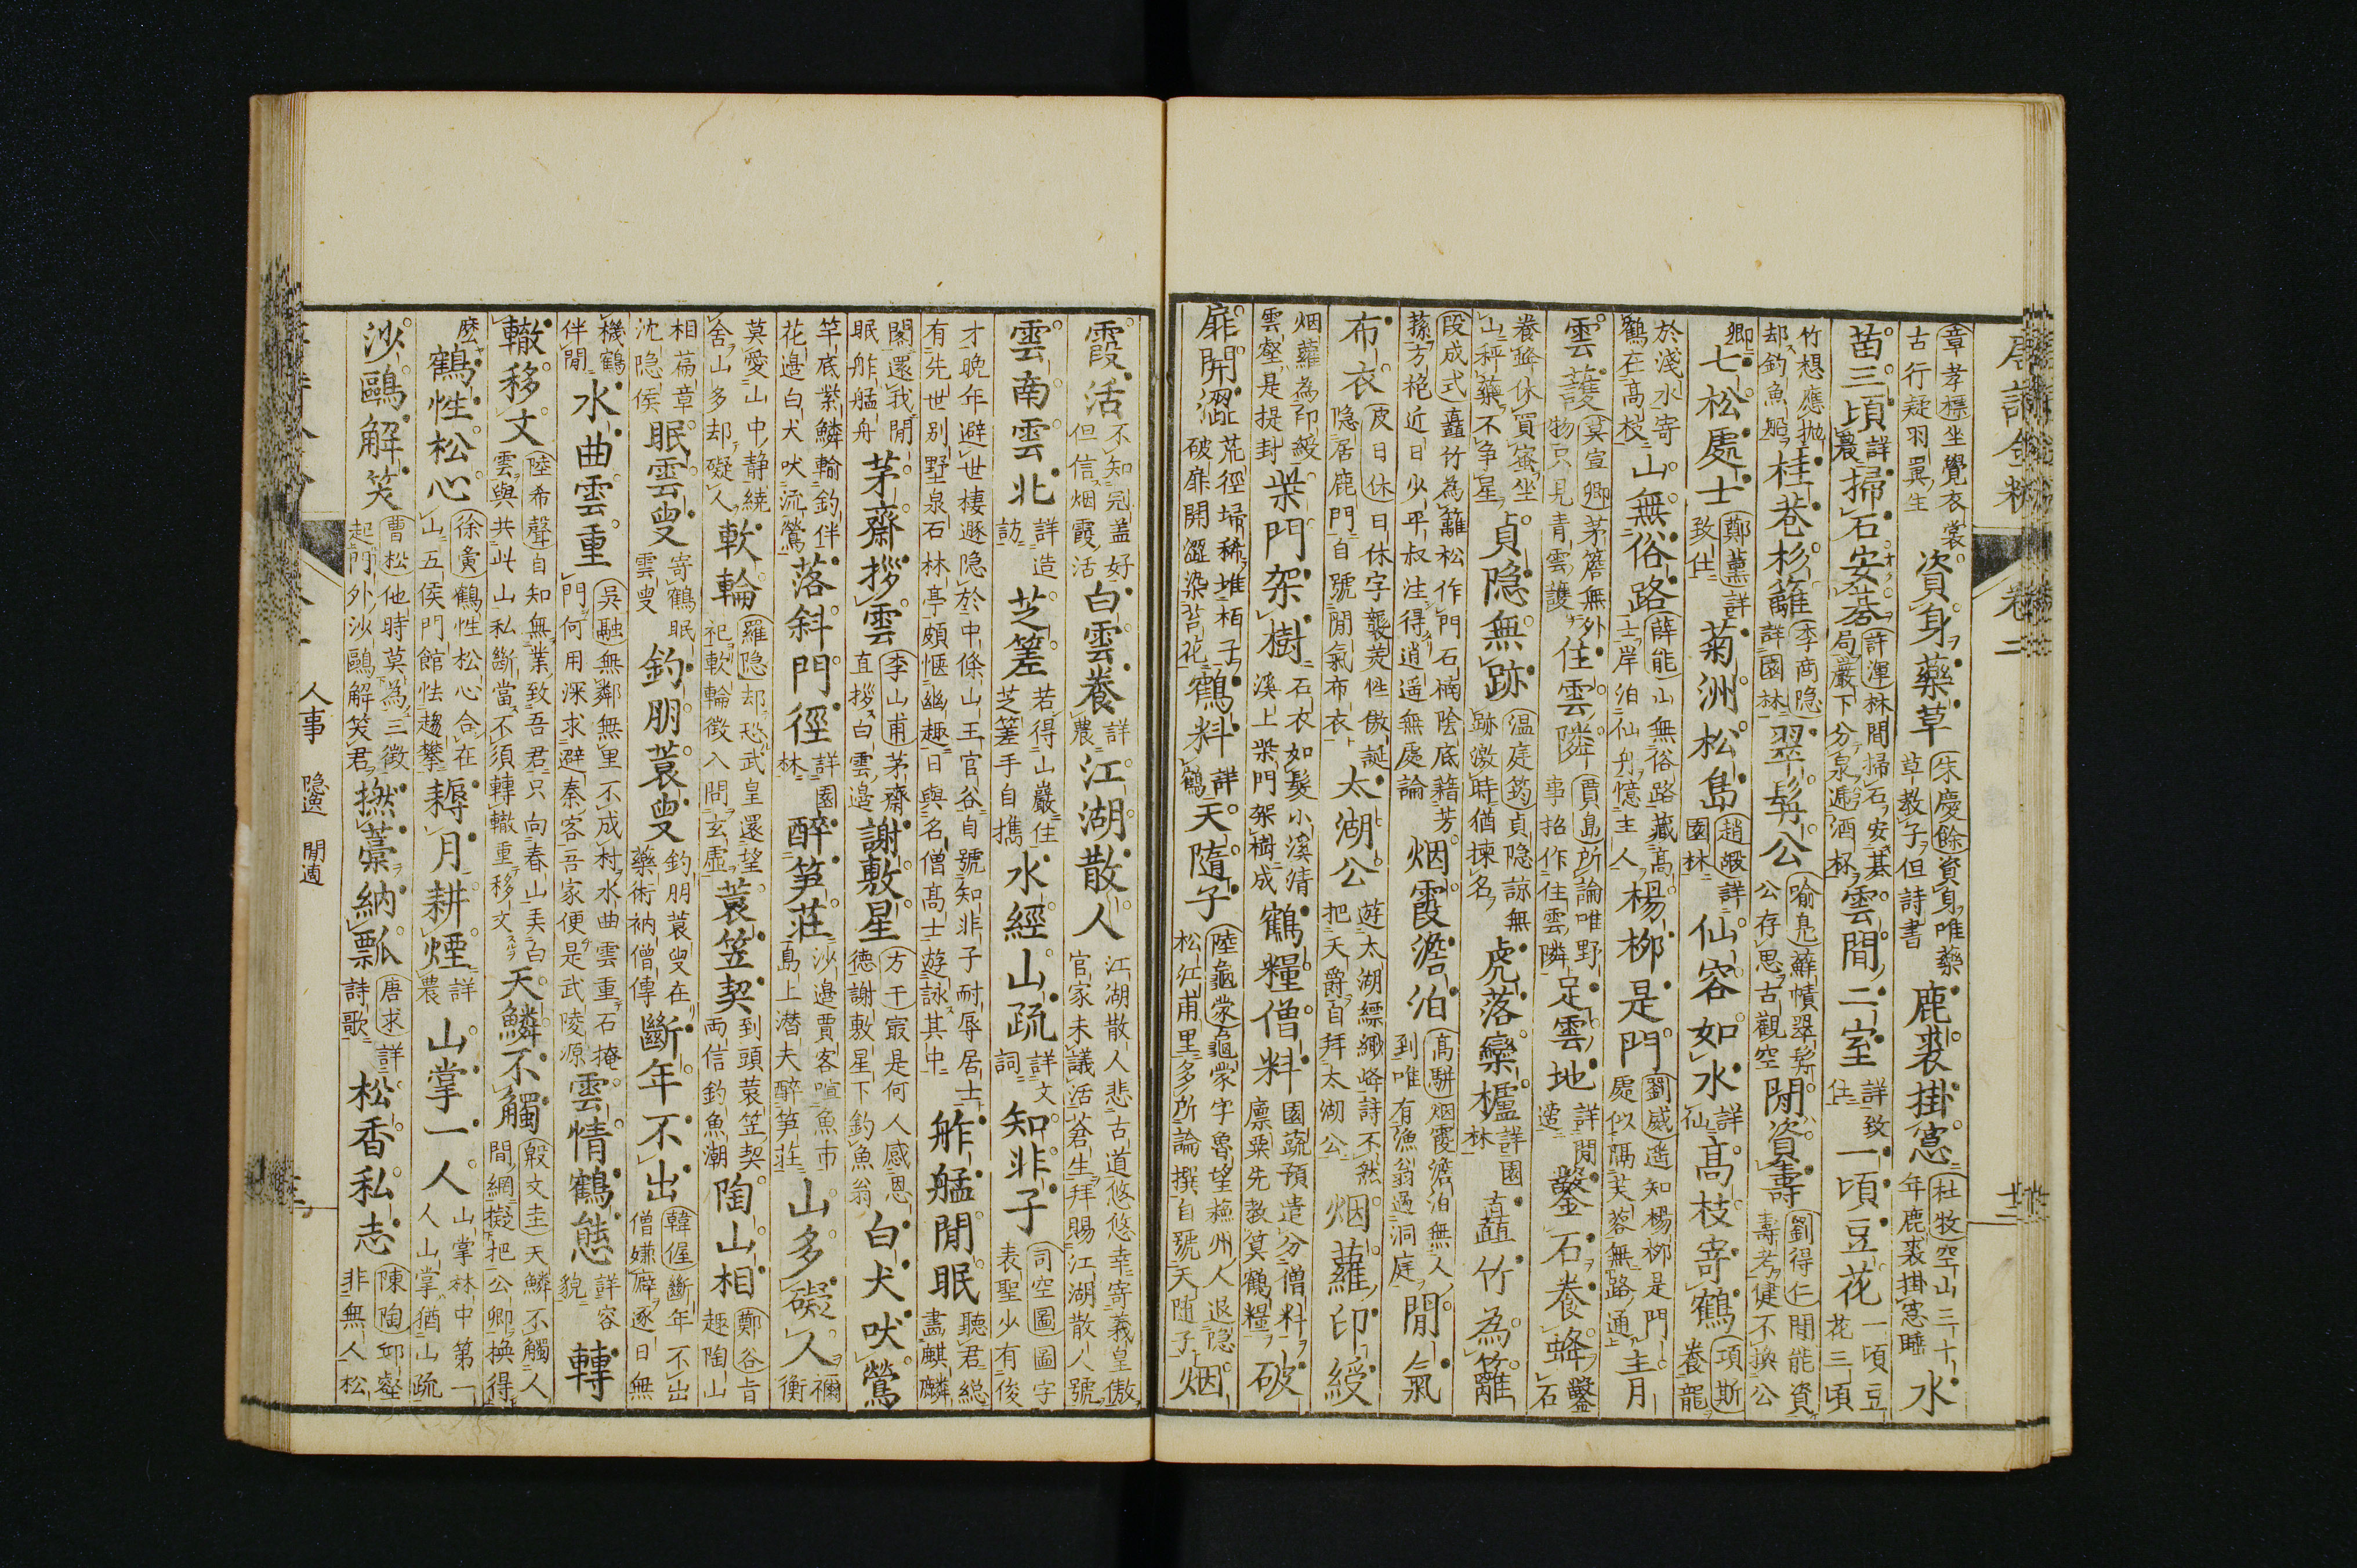 唐詩金粉 卷二 十二
章孝標坐覺衣裳
古行疑羽翼生
資身藥草
朱慶餘資身唯藥
草教子但詩書
鹿裘掛窓
杜牧空山三十
年鹿裘掛窓睡
水
苗三頃
詳農
掃石安棊
許渾林間掃石安棊
局巖下分泉遞酒杯
雲間二室
詳致仕
一頃豆花
一頃豆
花三頃
竹想應抛
却釣魚船
桂巷杉籬
李商隐
詳園林
翠髯公
喻鳧蘚幘翠髯
公存思古觀空
閒資壽
劉得仁閒能資
壽考健不換公
卿
七松處士
鄭薰詳
致仕
菊洲松島
趙嘏詳
園林
仙容如水
詳仙
高枝寄鶴
項斯
養龍
於淺水寄
鶴在高枝
山無俗路
薛能山無俗路藏高
士岸泊仙舟憶主人
楊柳是門
劉威遥知楊柳是門
處似隔芙蓉無路通
主月
雲護
莫宣卿茅簷無外
物只見青雲護
住雲隣
賈島所論唯野
事招作住雲隣
足雲地
詳閒適
鑿石養蜂
鑿石
養蜂休買蜜坐
山秤藥不争星
貞隐無跡
温庭筠貞隐諒無
跡激時猶揀名
虎落欒櫨
詳園林
矗竹為籬
段成式矗竹為籬松作門石楠陰底藉芳
蓀方袍近日少平叔注得逍遥無處論
烟霞澹泊
高駢烟霞澹泊無人
到唯有漁翁過洞庭
閒氣
布衣
皮日休日休字襲美性傲誕
隐居鹿門自號閒氣布衣
太湖公
遊太湖縹緲峰詩不然
把天爵自拜太湖公
烟蘿印綬
烟蘿為印綬
雲壑是提封
柴門架樹
石衣如髮小溪清
溪上柴門架樹成
鶴糧僧料
園蔬預遣分僧料
廩粟先教算鶴糧
破
扉開澀
荒徑埽稀堆栢子
破扉開澀染苔花
鶴料
詳鶴
天隨子
陸龜蒙龜蒙字魯望蘓州人退隐
松江甫里多所論撰自號天随子
烟
霞活
不知冠盖好
但信烟霞活
白雲養
詳農
江湖散人
江湖散人悲古道悠悠幸寄義皇傲
官家未議活蒼生拜賜江湖散人號
雲南雲北
詳造訪
芝䇥
若得山巖住
芝䇥手自攜
水經山疏
詳文詞
知非子
司空圖圖字
表聖少有俊
才晚年避世棲遯隐於中條山王官谷自號知非子耐辱居士
有先世别墅泉石林亭頗愜幽趣日與名僧高士遊詠其中
舴艋閒眠
聽君総
畵麒麟
閣還我閒
眠舴艋舟
茅齋拶雲
李山甫茅齋
直拶白雲邉
謝敷星
方干㝡是何人感恩
德謝敷星下釣魚翁
白犬吠鶯
竿底紫鱗輸釣伴
花邉白犬吠流鶯
落斜門徑
詳園林
醉笋莊
沙邉賈客喧魚市
島上潜夫醉笋莊
山多礙人
禰衡
莫愛山中静繞
舍山多却礙人
軟輪
羅隐却恐武皇還望
祀軟輪徴入問玄虚
蓑笠契
到頭蓑笠契
両信釣魚潮
陶山相
鄭谷旨
趣陶山
相萹章
沈隐侯
眠雲叟
寄鶴眠
雲叟
釣朋蓑叟
釣朋蓑叟在
藥術衲僧傳
斷年不出
韓偓斷年不出
僧嫌癖逐日無
機鶴
伴閒
水曲雲重
吳融無鄰無里不成村水曲雲重石掩
門何用深求避秦客吾家便是武陵源
雲情鶴態
詳容貌
轉
轍移文
陸希聲自知無業致吾君只向春山弄白
雲與共此山私斷當不須轉轍重移文
天鱗不觸
殷文圭天鱗不觸人
間網擬把公卿換得
麽
鶴性松心
徐夤鶴性松心合在
山五侯門館怯趨攀
耨月耕煙
詳農
山掌一人
山掌林中第一
人山掌猶山疏
沙鷗解笑
曹松他時莫為三徴
起門外沙鷗解笑君
撚藁納瓢
唐求詳
詩歌
松香私志
陳陶邱壑
非無人松
人事 隐逸 閒適